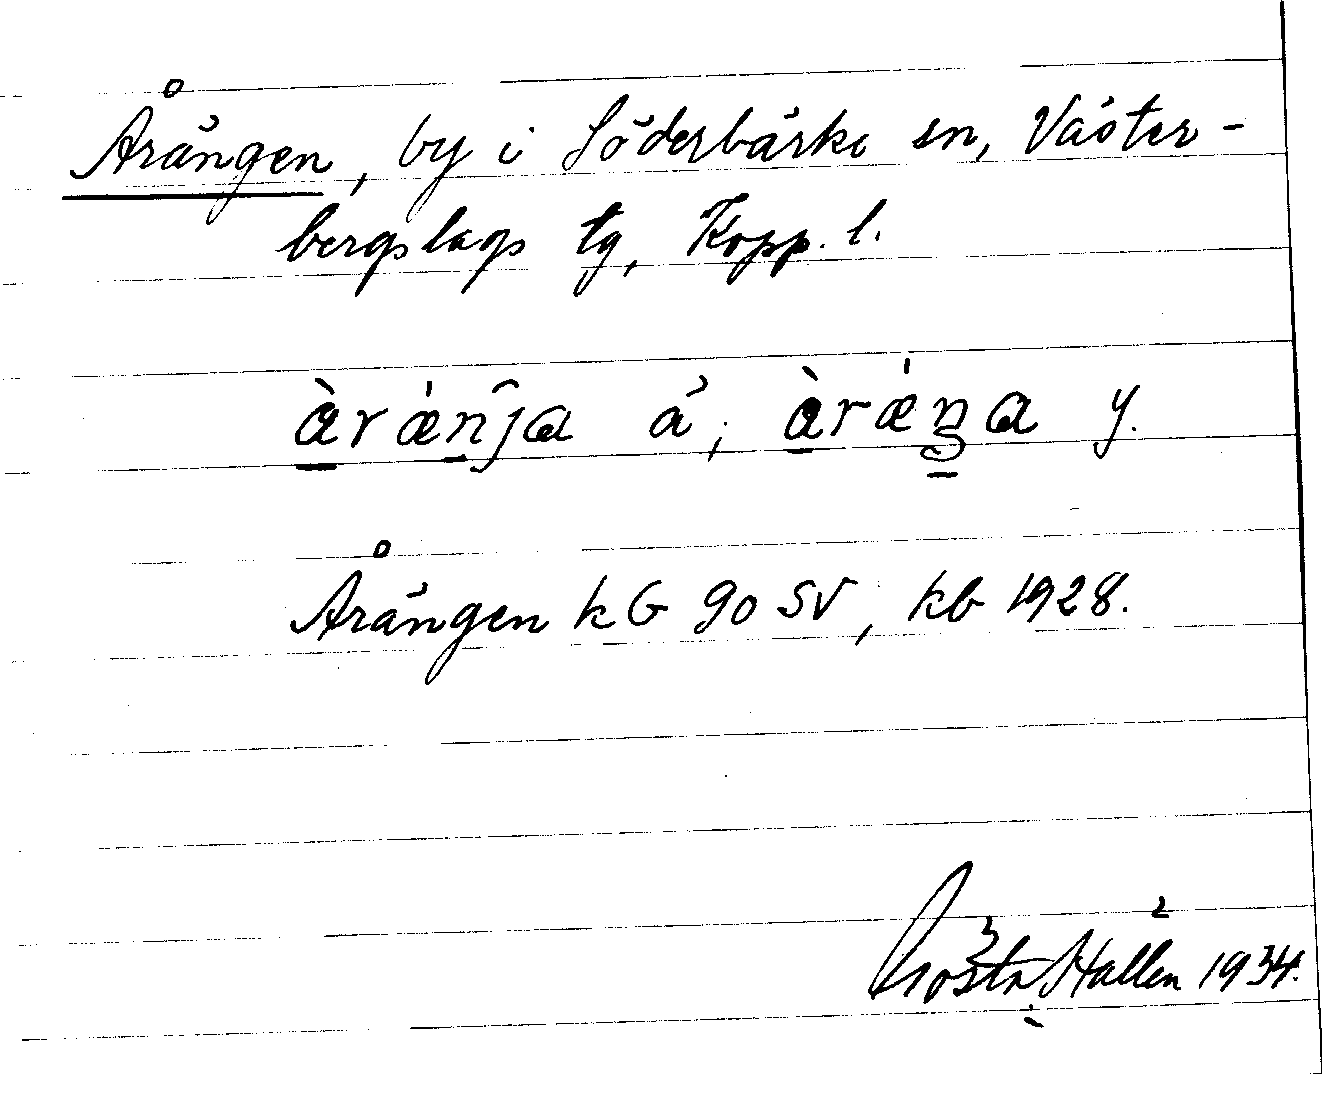 Årängen, by i Söderbärke sn, Väster-
bergslags tg, Kopp. l.
àrǽnja ä, àrǽŋa y.
Årängen k G 90 SV, kb 1928.
Gösta Hallén 1934.